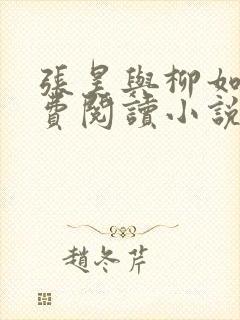 張昊與柳如
費閱讀小說
趙冬芹